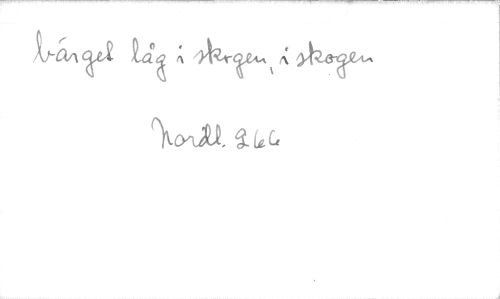 bärget låg i skogen, i skogen
Nordl. 266